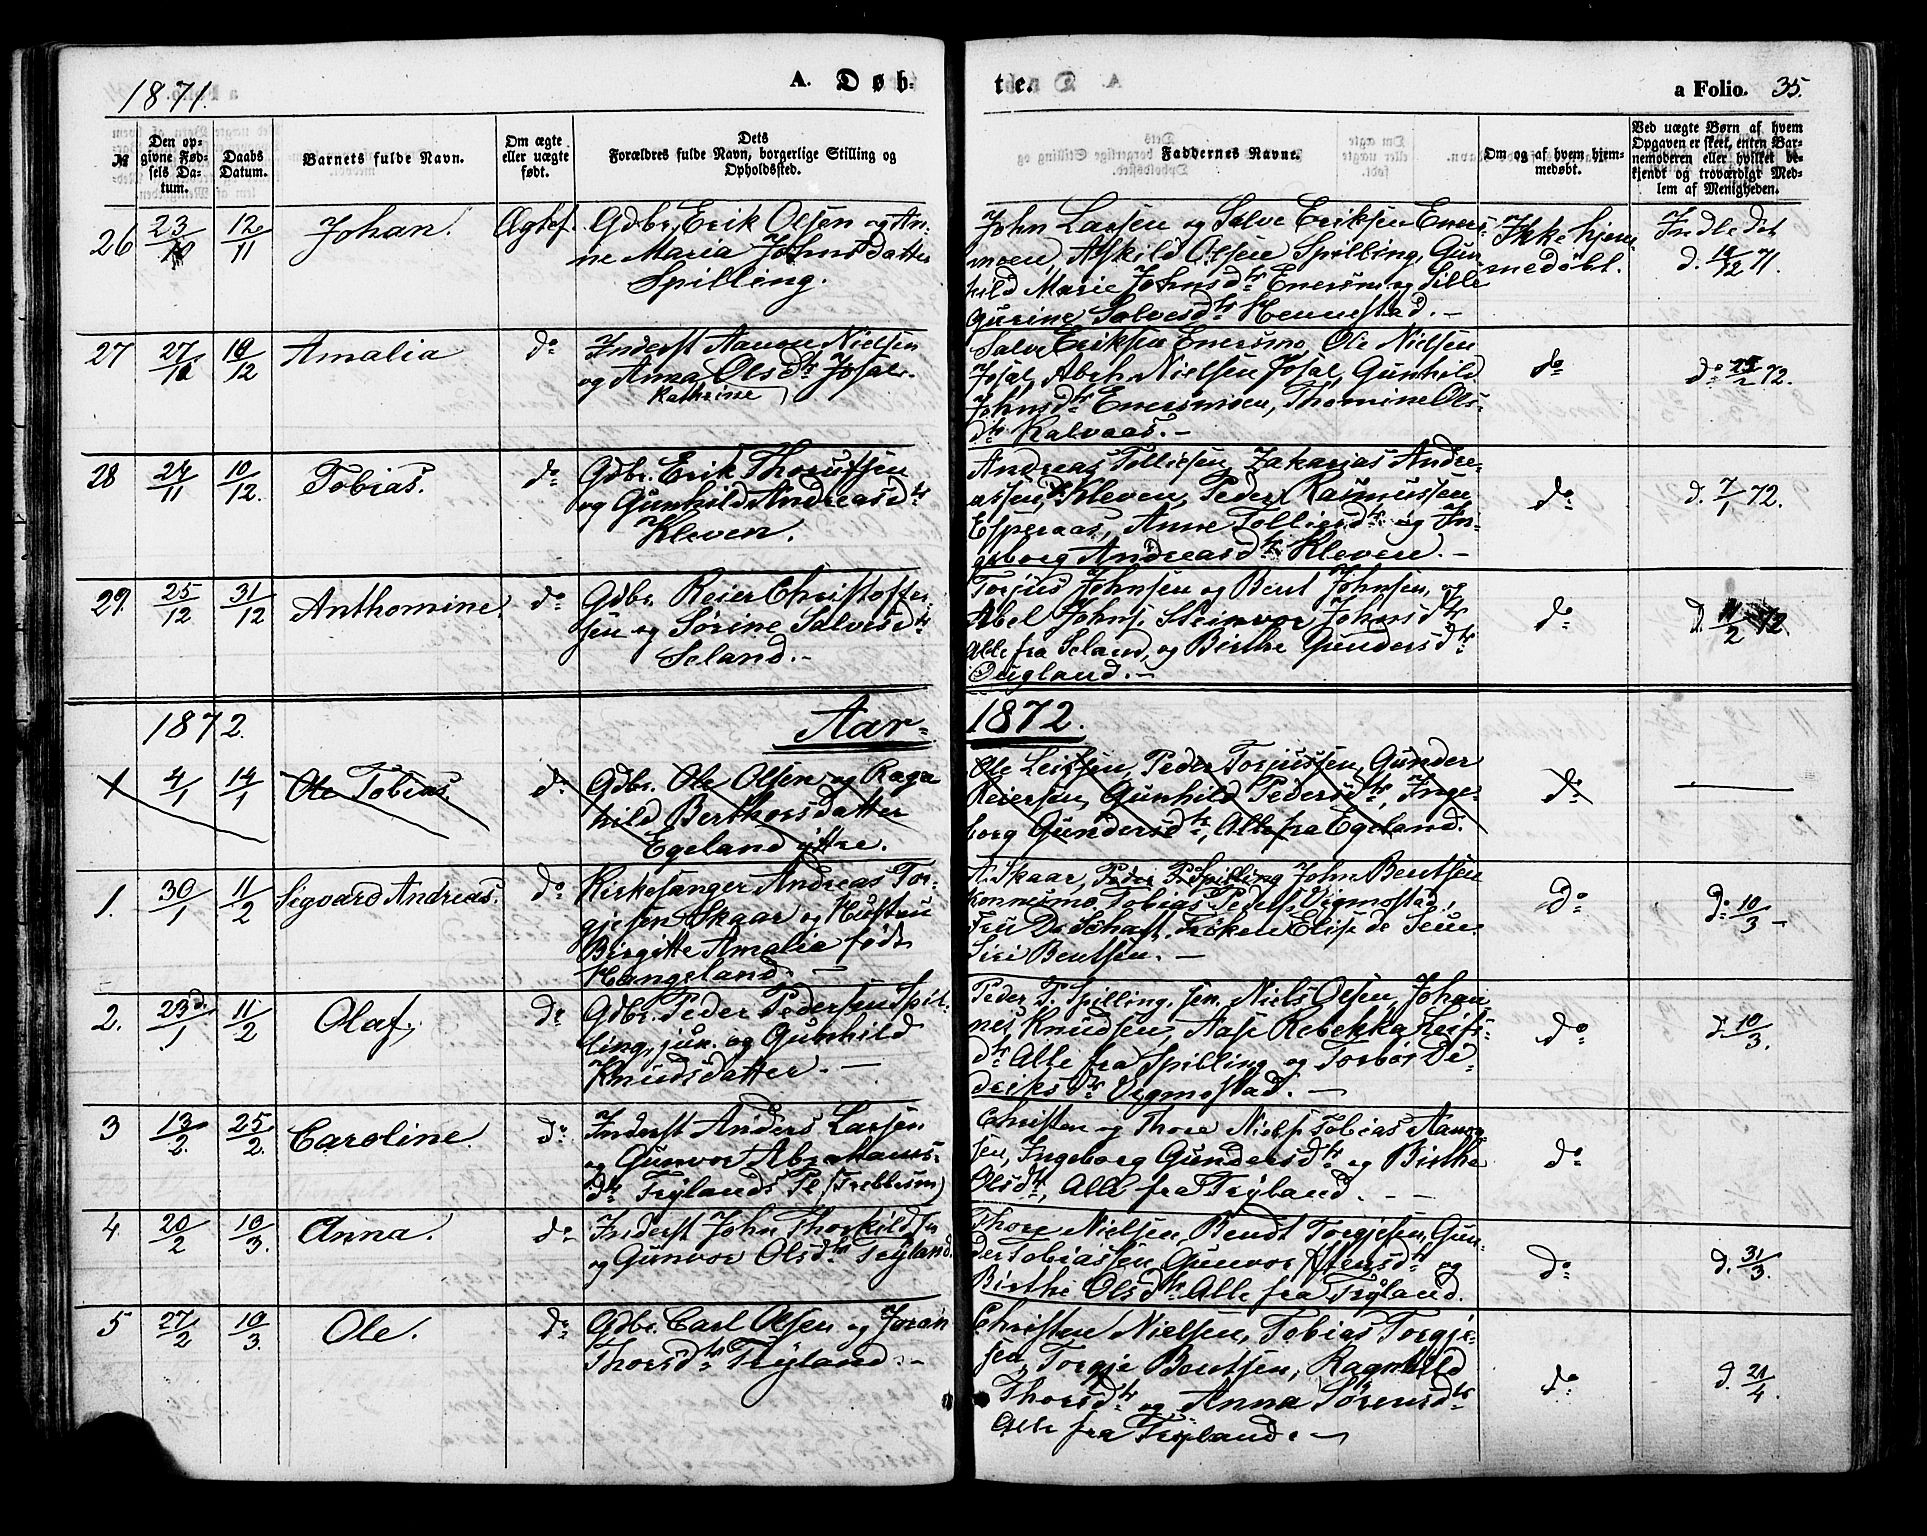 1871.
A. Døb-
te.
a Folio. 35.
№
Den op-
givne Fød-
sels Da-
tum.
Daabs
Datum.
Barnets fulde Navn.
Om ægte
eller uægte
født.
Dets
Forældres fulde Navn, borgerlige Stilling og
Opholdssted.
Faddernes Navne.
Om og af hvem hjem-
medøbt.
Ved uægte Børn af hvem
Opgaven er skeet, enten Bar-
nemoderen eller hvilket be-
kjendt og troværdigt Med-
lem af Menigheden.
26 23/10 12/11 Johan. Ægtef.
Gdbr. Erik Olsen og An-
ne Maria Johnsdatter
Spilling.
John Larsen og Salve Eriksen Eners-
moen, Askild Olsen Spilling, Gun-
hild Marie Johnsdtr Enersmo og Sille
Gurine Salvesdtr Hennestad. –
Ikke hjem-
medøbt.
Indledet
d. 10/12 71.
27 27/10 10/12 Amalia do
Inderst Aanon Nielsen
og Anna Olsdtr Josal.
Kathrine
Salve Eriksen Enersmo, Ole Nielsen
Josal, Abeh Nielsen Josal, Gunhild
Johnsdtr Enersmoen, Thomine Ols-
dtr Kalvaas. –
do
do 25/2 72.
28 24/11 10/12. Tobias. do
Gdbr. Erik Thorutsen
og Gunhild Andreasdtr
Kleven.
Andreas Tolliefsen, Zakarias Andre-
assen, Kleven, Peder Rasmussen
Esperaas, Anne Tolliefsdtr og In-
geborg Andreasdtr Kleven. –
do
d. 7/1 72.
29. 25/12 31/12 Anthomine. do
Gdbr. Reier Christoffer-
sen og Sørine Salvesdtr
Seland. –
Torjus Johnsen og Bent Johnsen, og
Abel Johns. Steinvor Johnsdtr
Alle fra Seland, og Birthe Gundersdtr
Øugland. –
do
d. 11/2 72.
1872. Aar- 1872.
1 4/1 14/1 Ole Tobias. do
Gdbr. Ole Olsen og Ragn-
hild Berthorsdatter
Egeland ytre.
Ole Leifsen, Peder Torjussen, Gunder
Reiersen, Gunhild Pedersdtr, Inge-
borg Gundersdtr, Alle fra Egeland.
do
—
1. 30/1 11/2 Sigvard Andreas. do
Kirkesanger Andreas Tor-
gjesen Skaar og Hustru
Birgitte Amalia født
Hangeland. –
A. Skaar, Peder P. Spilling John Bentsen
Konnismo, Tobias Peders. Vigmostad,
Fru De Schaft, Frøken Elise de Seue
Siri Bentsen. –
Do
Do 10/3 –
2. 23d/1 11/2 Olaf. do
Gdbr. Peder Pedersen Spil-
ling, jun. og Gunhild
Knudsdatter. –
Peder T. Spilling, sen. Niels Olsen, Johan-
nes Knudsen, Aase Rebekka Leifs-
dtr Alle fra Spilling og Torbør De-
driksdtr Vigmostad. –
do
d. 10/3.
3 13/2. 25/2. Caroline. do
Inderst Anders Larsen
og Gunvor Abrahams-
dtr Trylands Pl. (Trebbesmo)
Christen og Thore Niels. Tobias Aanon-
sen, Ingeborg Gundersdtr og Birthe
Olsdtr, Alle fra Tryland. –
do
4. 20/2 10/3. Anna. do
Inderst John Thorkildsen
og Gunvor Olsdtr Tryland.
Thore Nielsen, Bendt Torgjesen, Gun-
der Tobiassen, Gunvor Atensdtr og
Birthe Olsdtr Alle fra Tryland.
do
d. 31/3.
5 27/2 10/3. Ole. do
Gdbr. Carl Olsen og Joran
Thorsdtr Tryland. –
Christen Nielsen, Tobias Torgje-
sen, Torgje Bentsen, Ragnhild
Thorsdtr og Anna Sørensdtr
Alle fra Tryland. –
do
d. 21/4.